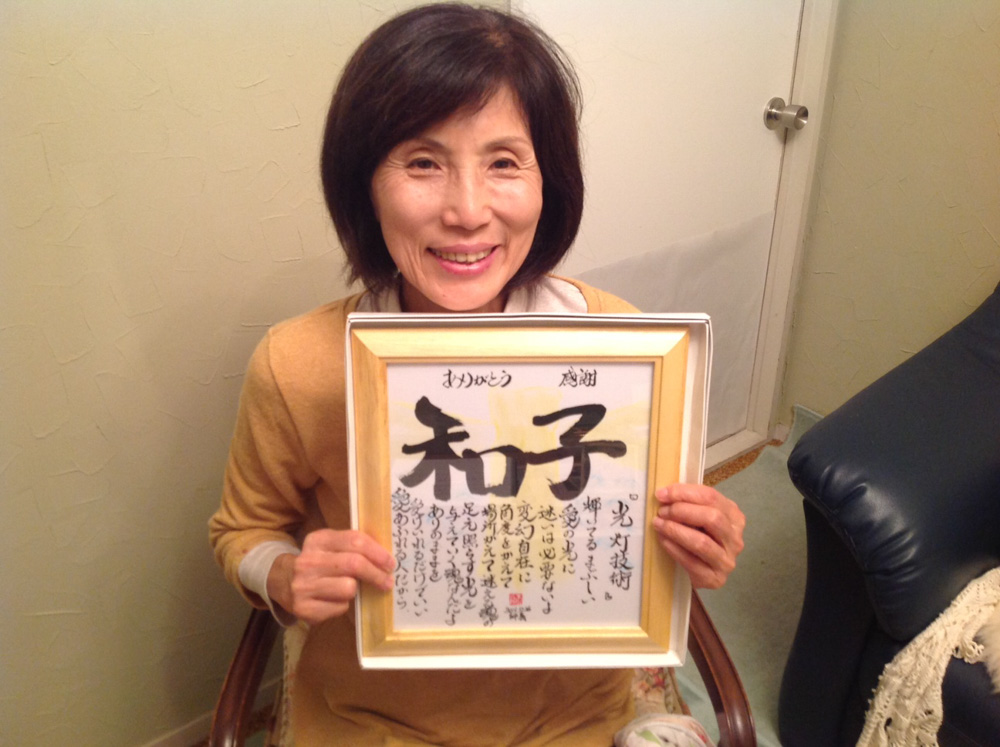 ありがとう 感謝
和子
『光灯技術』
輝いてるまぶしい
愛の光に
迷いは必要ないよ
変幻自在に
角度をかえて
場所かえて迷える
足元照らす光を
与えていく
ありのままを
受けいれるだけでいい
愛あふれる人だから